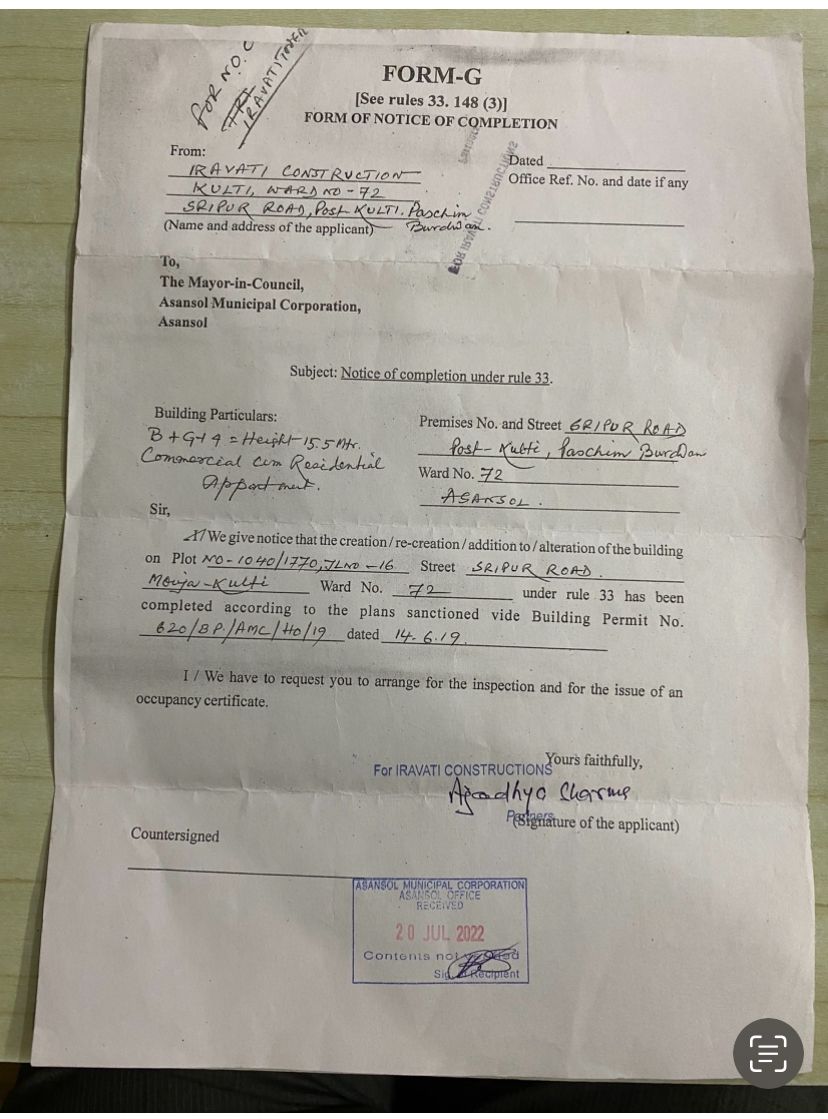 FOR N.O.C
IRAVATI TOWER
FORM-G
[See rules 33. 148 (3)]
FORM OF NOTICE OF COMPLETION
From:
IRAVATI CONSTRUCTION
KULTI, WARD NO - 72
SRIPUR ROAD, Post KULTI. Paschim
Burdwan.
(Name and address of the applicant)
Dated
Office Ref. No. and date if any
FOR IRAVATI CONSTRUCTIONS
To,
The Mayor-in-Council,
Asansol Municipal Corporation,
Asansol
Subject: Notice of completion under rule 33.
Building Particulars:
B+G+4 = Height-15.5 Mtr.
Commercial cum Residential
Appartment.
Premises No. and Street SRIPUR ROAD
Post - Kulti, Paschim Burdwan
Ward No. 72
ASANSOL.
Sir,
I/We give notice that the creation/re-creation/addition to/alteration of the building
on Plot NO-1040/1770, JLNO-16 Street SRIPUR ROAD.
Mouja-Kulti Ward No. 72 under rule 33 has been
completed according to the plans sanctioned vide Building Permit No.
620/BP/AMC/HO/19 dated 14.6.19.
I / We have to request you to arrange for the inspection and for the issue of an
occupancy certificate.
Yours faithfully,
For IRAVATI CONSTRUCTIONS
Ajodhya Sharma
Partners
(Signature of the applicant)
Countersigned
ASANSOL MUNICIPAL CORPORATION
ASANSOL OFFICE
RECEIVED
20 JUL 2022
Contents not verified
Sig. of Recipient